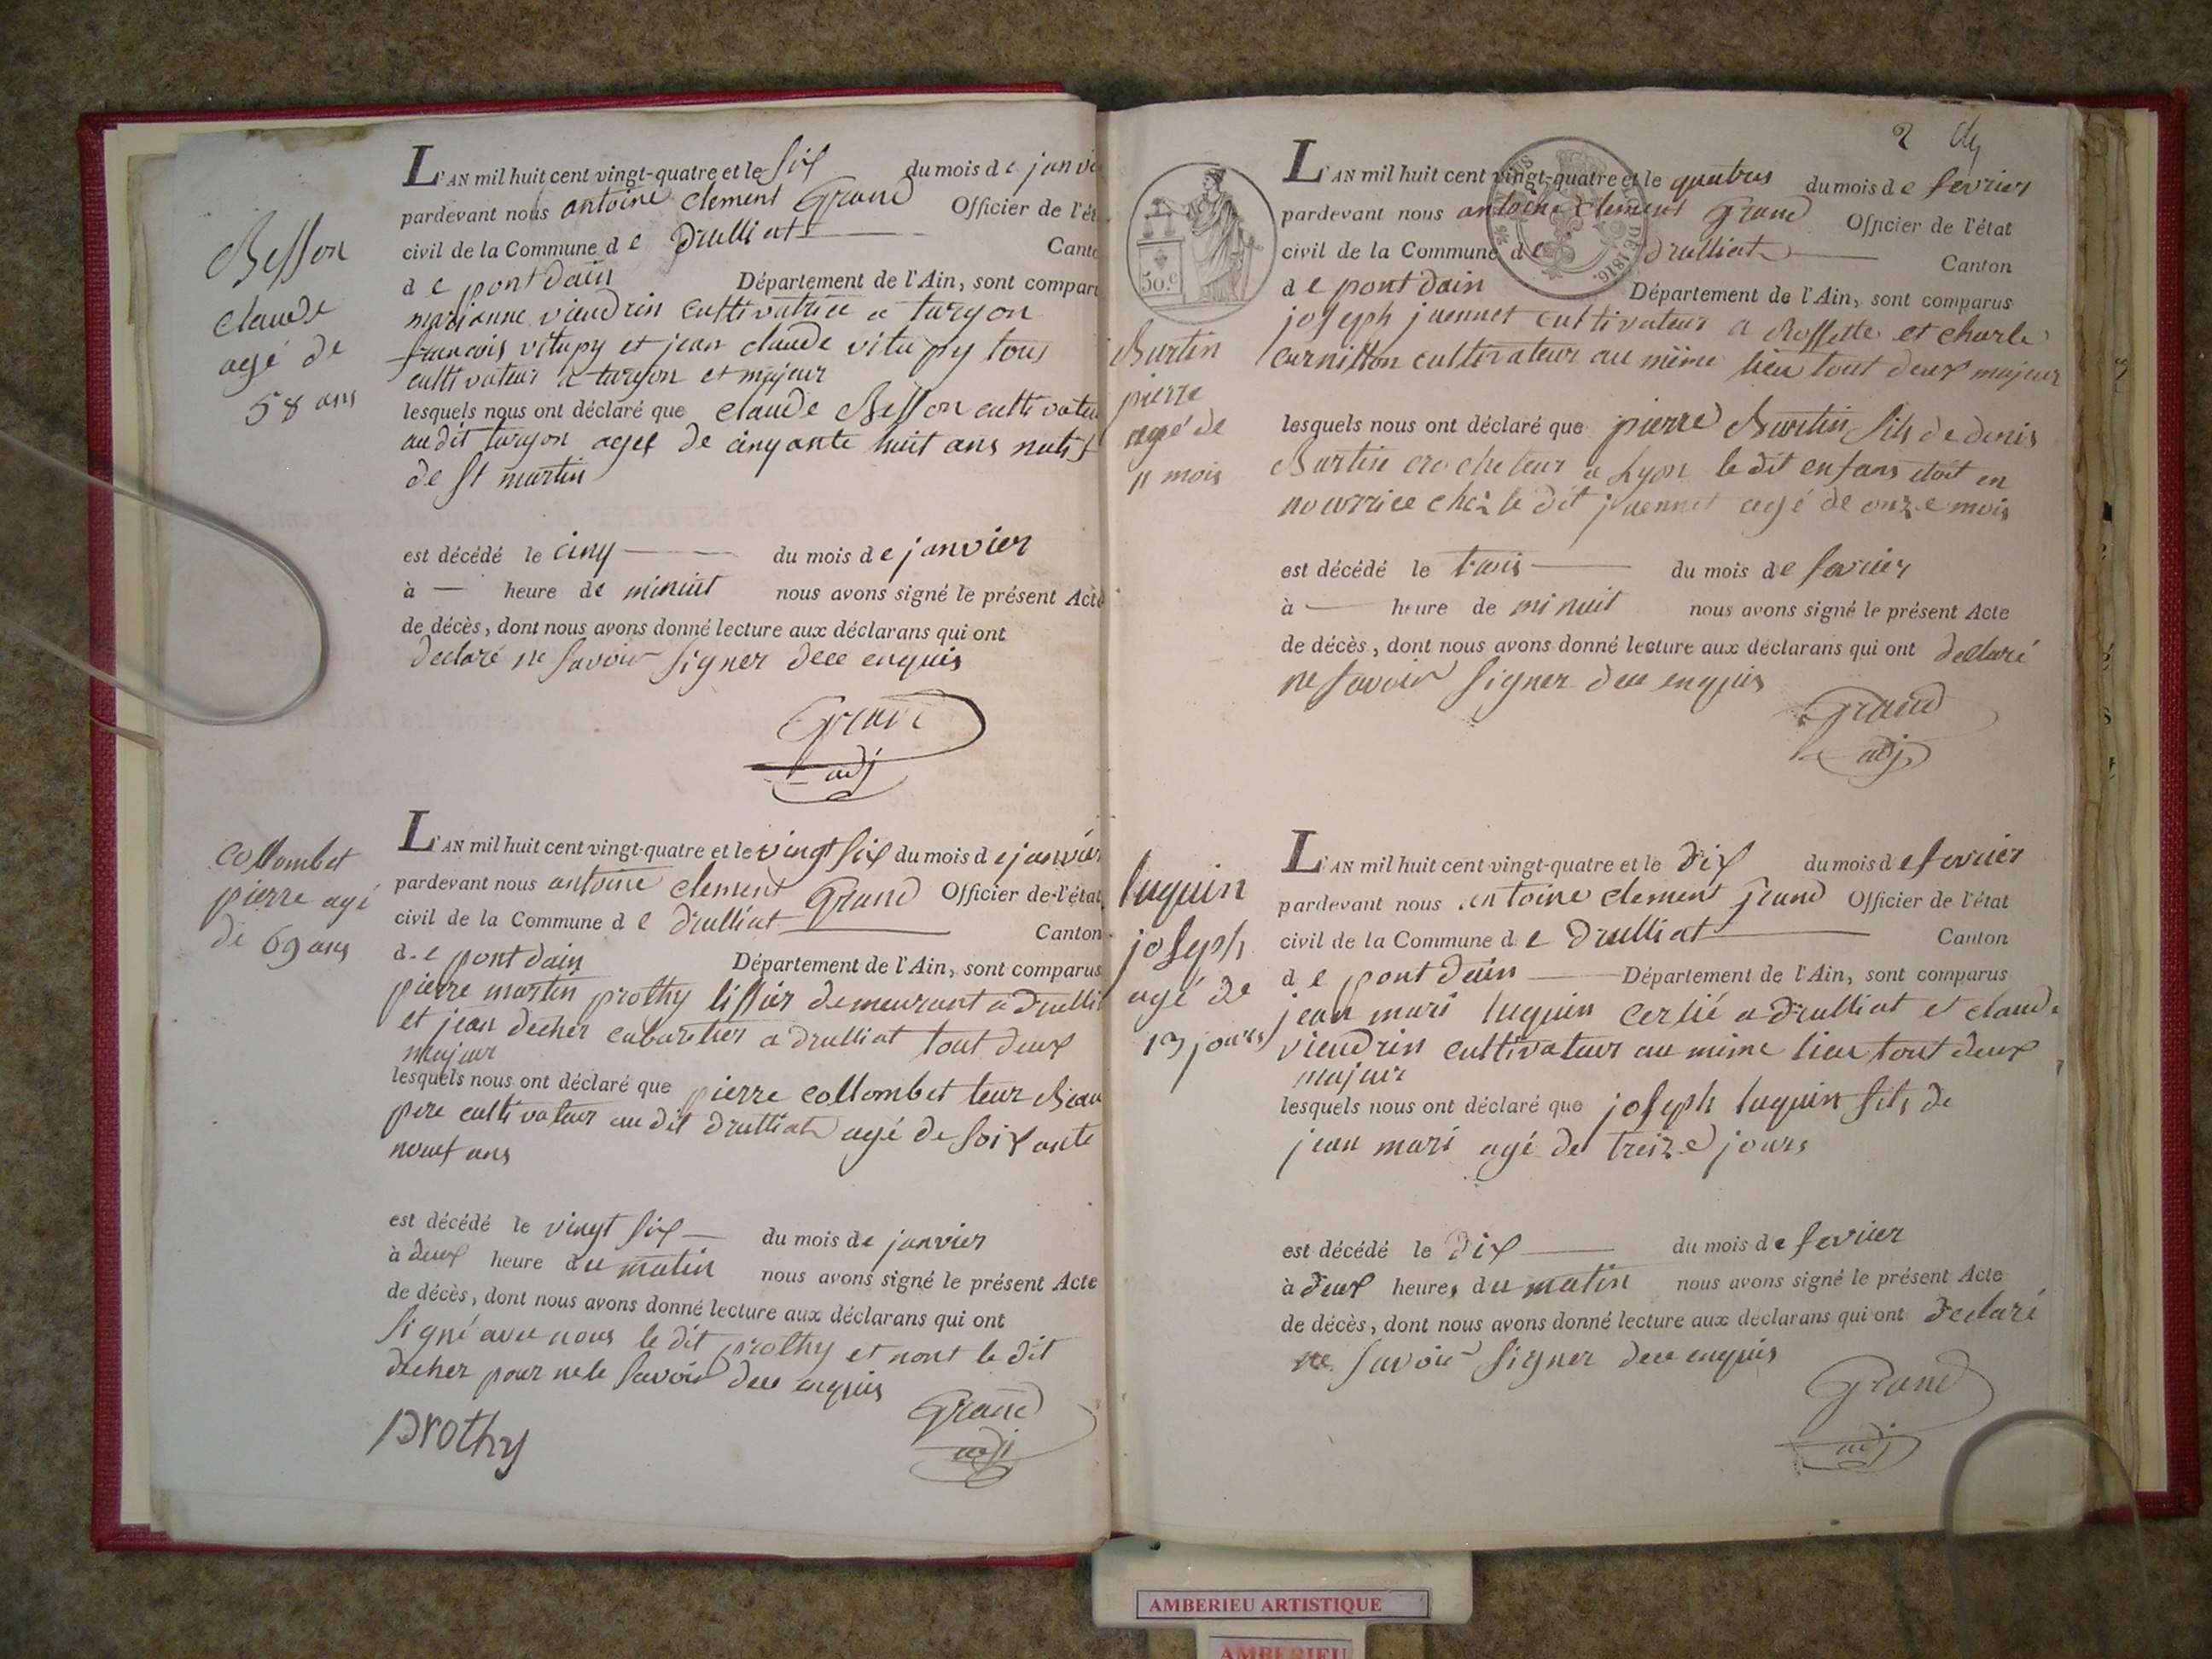 Besson
claude
agé de
58 ans
L'AN mil huit cent vingt-quatre et le six du mois de janvi
pardevant nous antoine clement Grand Officier de l'ét
civil de la Commune de Drulliat Canto
de pont dain Département de l'Ain, sont compar
marianne viendrin cultivatrice a turgon
francois vitupy et jean claude vitupy tous
cultivateur a turgon et majeur
lesquels nous ont déclaré que claude Besson cultivateu
audit turgon agee de cinqante huit ans natif
de St martin
est décédé le cinq du mois de janvier
à — heure de minuit nous avons signé le présent Acte
de décès, dont nous avons donné lecture aux déclarans qui ont
declaré ne savoir signer dece enquis
Grand
adj
collombet
pierre agé
de 69 ans
L'AN mil huit cent vingt-quatre et le vingt six du mois de janvier
pardevant nous antoine clement Grand Officier de l'état
civil de la Commune de Drulliat Canton
de pont dain Département de l'Ain, sont comparus
pierre martin prothy tissier demeurant a drulli
et jean decher cabartier a drulliat tout deux
majeur
lesquels nous ont déclaré que pierre collombet leur Beau
pere cultivateur au dit drulliat agé de soixante
neuf ans
est décédé le vingt six du mois de janvier
à deux heure du matin nous avons signé le présent Acte
de décès, dont nous avons donné lecture aux déclarans qui ont
signé avec nous le dit prothy et nont le dit
decher pour ne le savoir dece enquis
prothy
Grand
adj
2
50.c
DE 1816.
Burtin
pierre
agé de
11 mois
L'AN mil huit cent vingt-quatre et le quatres du mois de fevrier
pardevant nous antoine clement Grand Officier de l'état
civil de la Commune de drulliat Canton
de pont dain Département de l'Ain, sont comparus
joseph juennet cultivateur a Rossette et charle
cornillon cultivateur au même lieu tout deux majeur
lesquels nous ont déclaré que pierre Burtin fils de denis
Burtin crocheteur a Lyon le dit enfans etoit en
nourrice chez le dit juennet agé de onze mois
est décédé le trois du mois de fevrier
à — heure de minuit nous avons signé le présent Acte
de décès, dont nous avons donné lecture aux déclarans qui ont declaré
ne savoir signer dece enquis
Grand
adj
luquin
joseph
agé de
13 jours
L'AN mil huit cent vingt-quatre et le dix du mois de fevrier
pardevant nous antoine clement Grand Officier de l'état
civil de la Commune de Drulliat Canton
de pont dain Département de l'Ain, sont comparus
jean mari luquin cerlié a drulliat et claude
viendrin cultivateur au même lieu tout deux
majeur
lesquels nous ont déclaré que joseph luquin fils de
jean mari agé de treize jours
est décédé le dix du mois de fevrier
à deux heures du matin nous avons signé le présent Acte
de décès, dont nous avons donné lecture aux déclarans qui ont declaré
ne savoir signer dece enquis
Grand
adj
AMBERIEU ARTISTIQUE
AMBERIEU